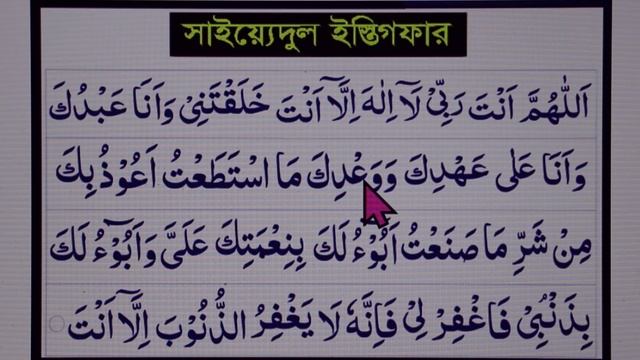 সাইয়্যেদুল ইস্তিগফার
اَللّٰهُمَّ اَنْتَ رَبِّيْ لَآ اِلٰهَ اِلَّآ اَنْتَ خَلَقْتَنِيْ وَاَنَا عَبْدُكَ
وَاَنَا عَلٰى عَهْدِكَ وَوَعْدِكَ مَا اسْتَطَعْتُ اَعُوْذُ بِكَ
مِنْ شَرِّ مَا صَنَعْتُ اَبُوْءُ لَكَ بِنِعْمَتِكَ عَلَىَّ وَاَبُوْٓءُ لَكَ
بِذَنْۢبِيْ فَاغْفِرْ لِيْ فَاِنَّهٗ لَا يَغْفِرُ الذُّنُوْبَ اِلَّآ اَنْتَ